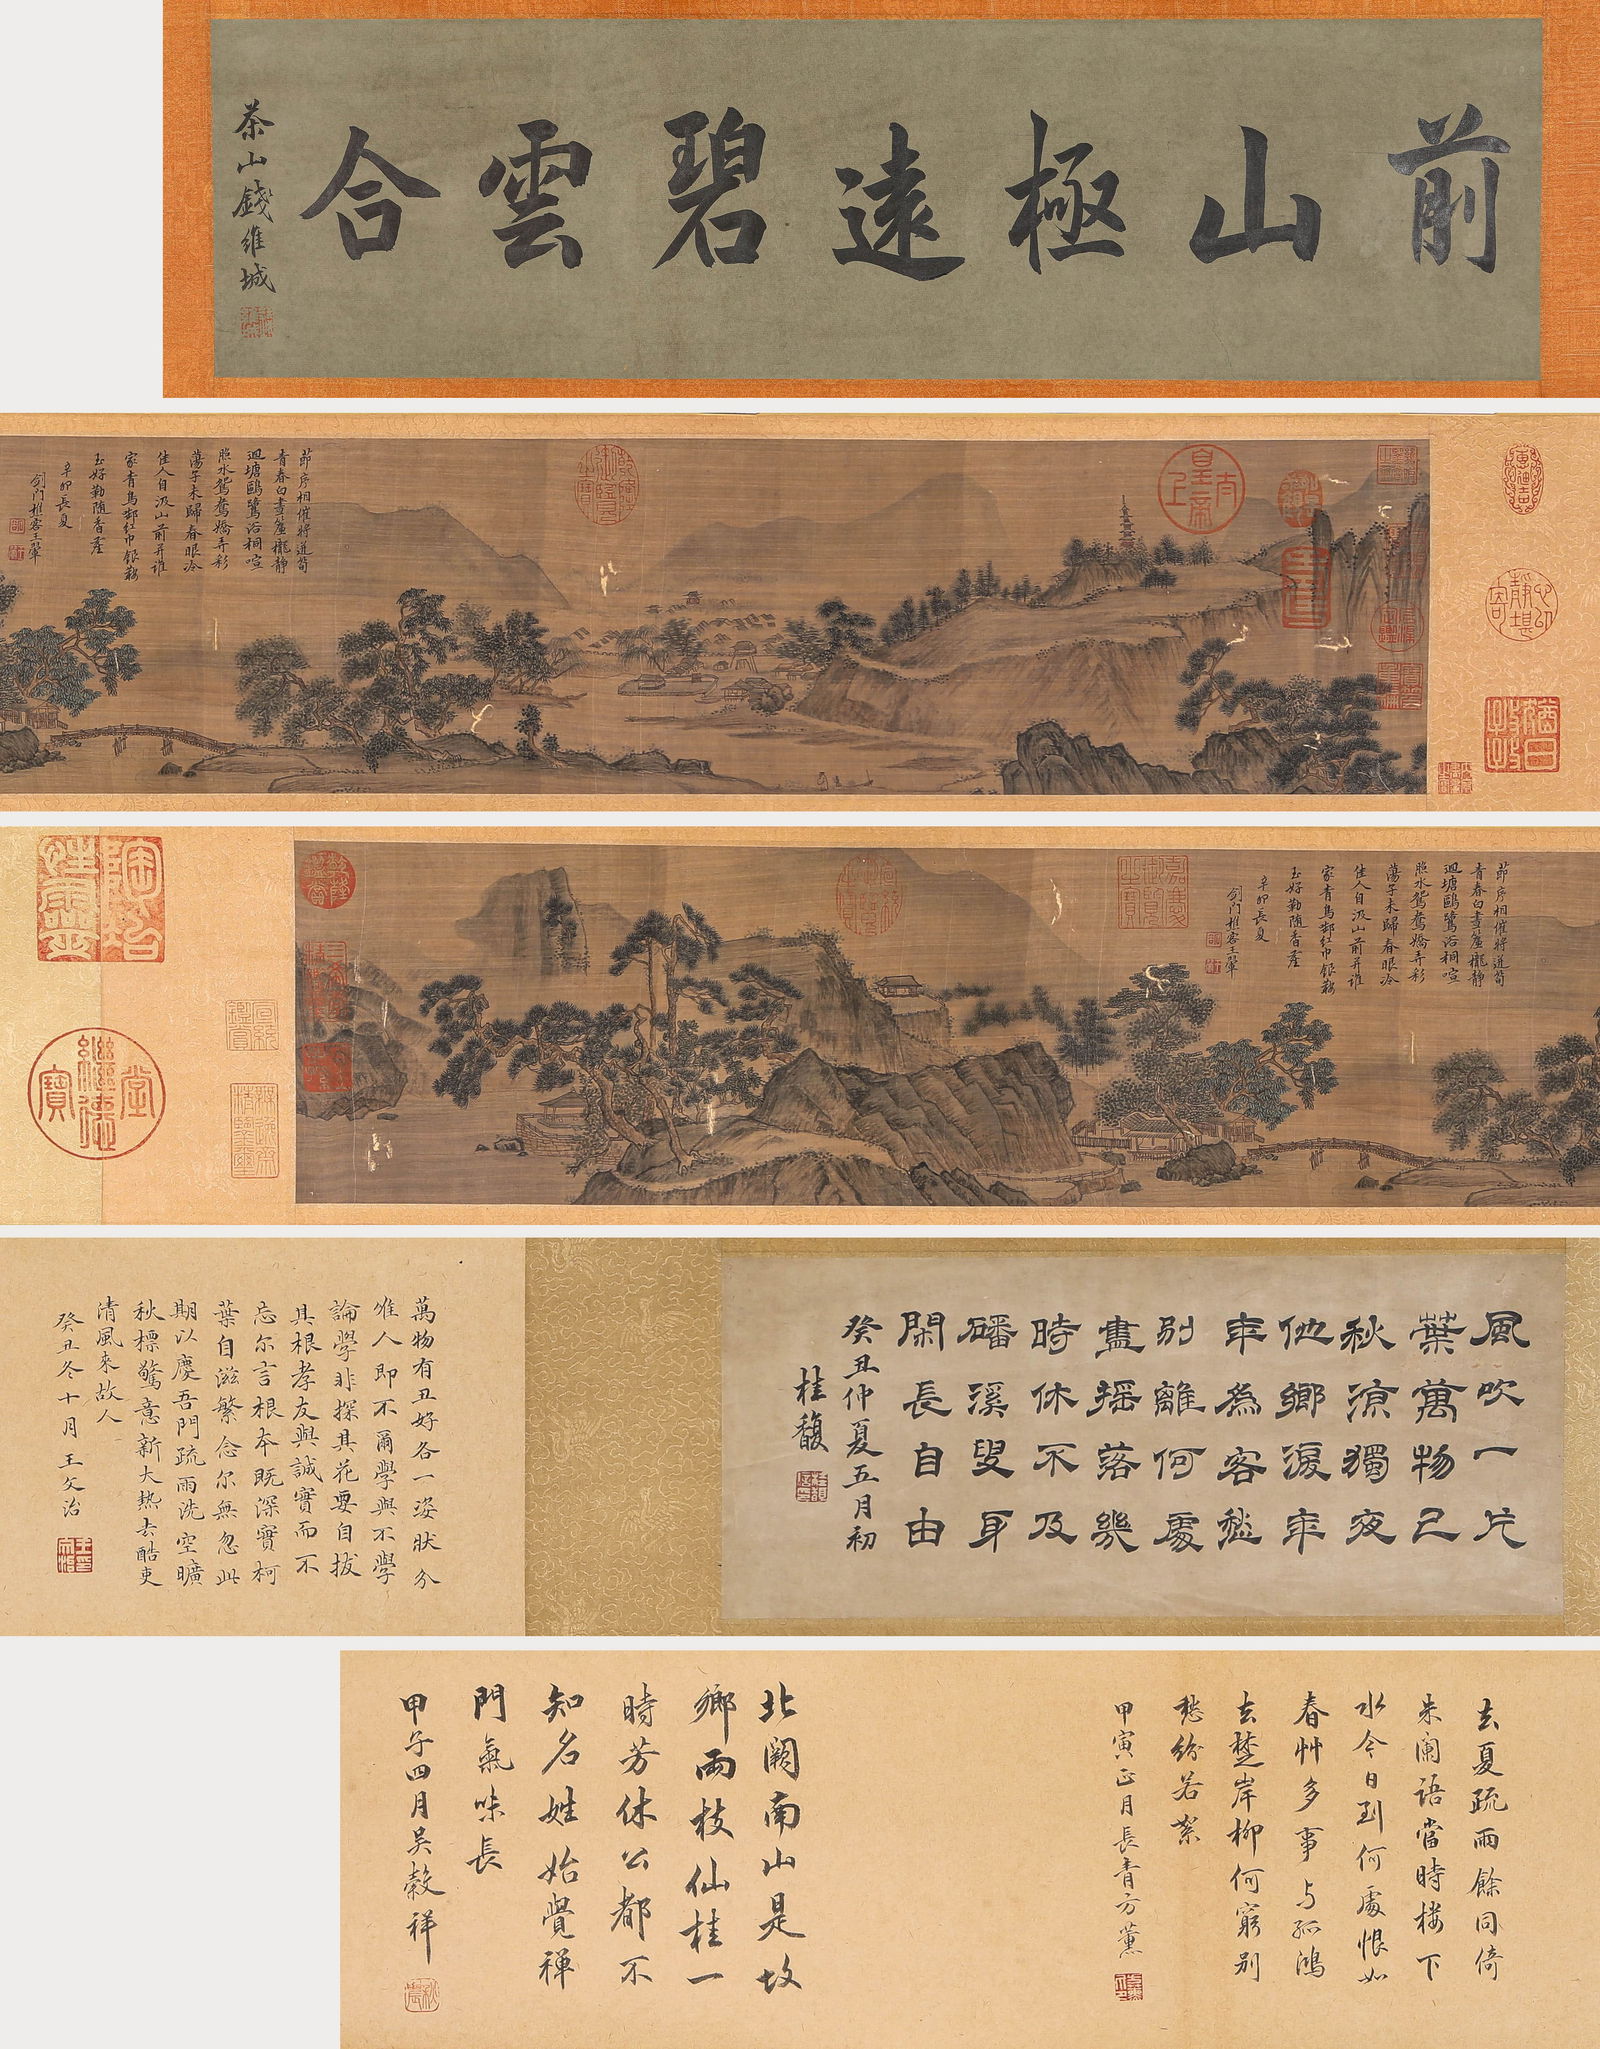 前山極遠碧雲合
茶山錢維城
節序相催將迸筍
青春白晝簾櫳靜
迴塘鷗鷺浴桐喧
照水鴛鴦嬌弄彩
蕩子未歸春眠冷
佳人自汲山前井誰
家青鳥
紅巾銀鞍
玉好勒隨香塵
辛卯長夏
劍門樵客王翬
節序相催將迸筍
青春白晝簾櫳靜
迴塘鷗鷺浴桐喧
照水鴛鴦嬌弄彩
蕩子未歸春眠冷
佳人自汲山前井誰
家青鳥
紅巾銀鞍
玉好勒隨香塵
辛卯長夏
劍門樵客王翬
風吹一片
葉萬物已
秋涼獨夜
他鄉淚年
年為客愁
別離何處
盡搖落幾
時休不及
磻溪叟身
閑長自由
癸丑仲夏五月初
桂馥
萬物有丑好各一姿狀分
惟人即不爾學與不學
論學非探其花要自拔
其根孝友與誠實而不
忘尔言根本既深實柯
葉自滋繁念尔無忽此
期以慶吾門疏雨洗空曠
秋標驚意新大熱去酷吏
清風來故人
癸丑冬十月王文治
去夏疏雨餘同倚
朱闌語當時樓下
水今日到何處恨如
春艸多事与孤鴻
去楚岸柳何窮別
愁紛若絮
甲寅正月長青方薰
北闕南山是故
鄉兩枝仙桂一
時芳休公都不
知名姓始覺禪
門氣味長
甲子四月吳穀祥